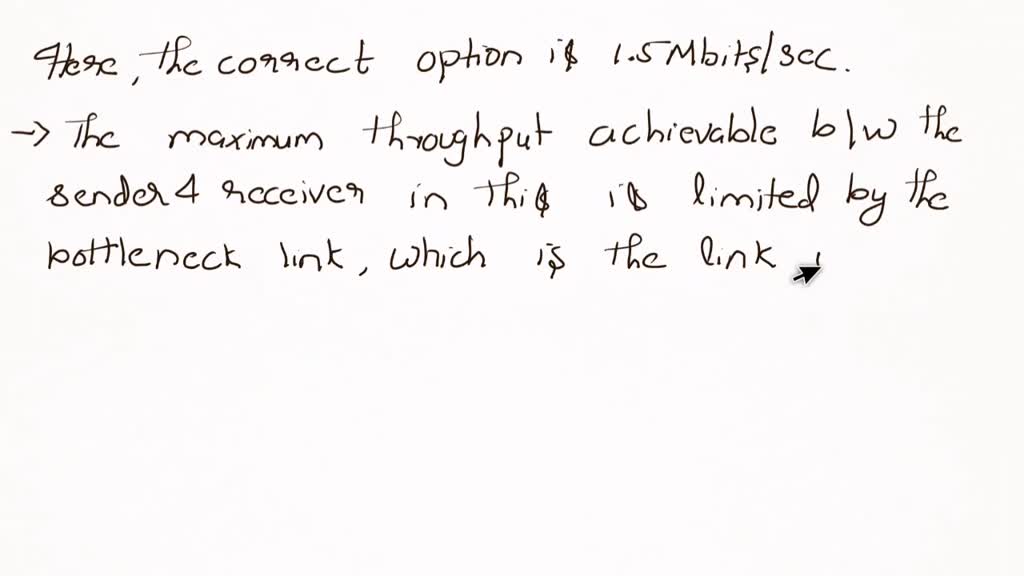 Here, the correct option is 1.5Mbits/sec.
-> The maximum throughput achievable b/w the
sender & receiver in this is limited by the
bottleneck link, which is the link